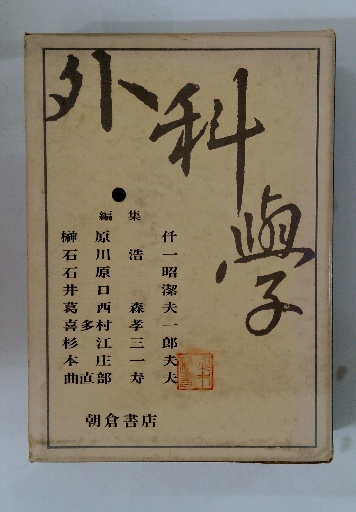 外科學
編集
榊原仟
石川浩一
石原昭
井口潔
葛西森夫
喜多村孝一
杉江三郎
本庄一夫
曲直部寿夫
朝倉書店